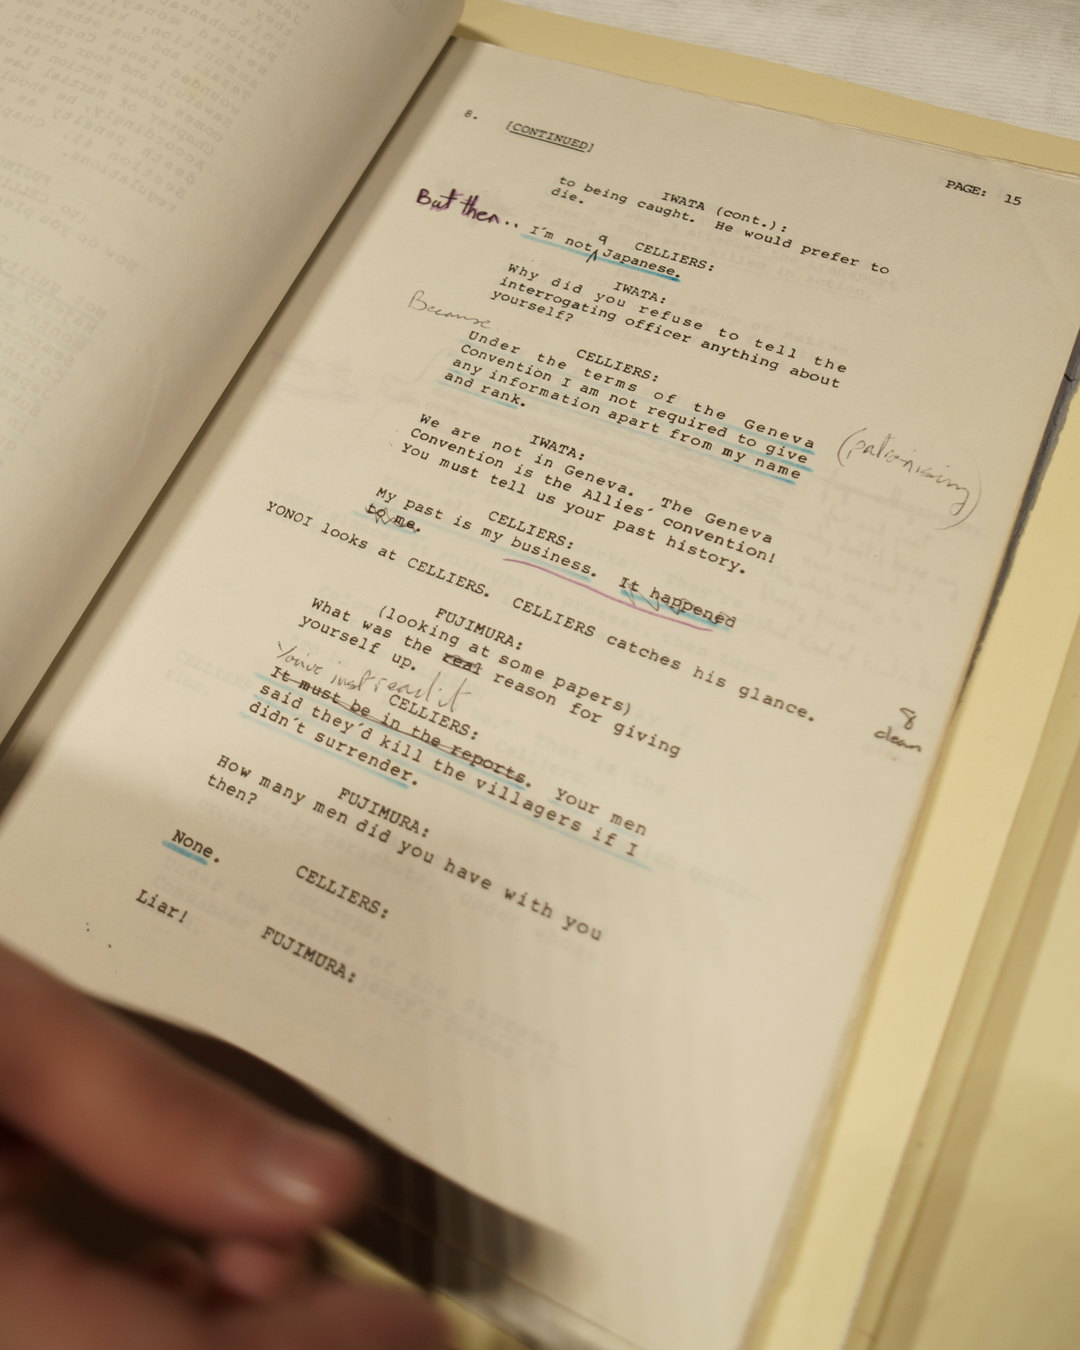 8. [CONTINUED]
PAGE: 15
IWATA (cont.):
to being caught. He would prefer to
die.
But then..
CELLIERS:
I'm not a Japanese.
IWATA:
Why did you refuse to tell the
interrogating officer anything about
yourself?
Because
CELLIERS:
Under the terms of the Geneva
Convention I am not required to give
any information apart from my name
and rank.
(patronising)
IWATA:
We are not in Geneva. The Geneva
Convention is the Allies' convention!
You must tell us your past history.
CELLIERS:
My past is my business. It happened
to me.
YONOI looks at CELLIERS. CELLIERS catches his glance.
FUJIMURA:
(looking at some papers)
What was the real reason for giving
yourself up.
8
clean
You've just read it
CELLIERS:
It must be in the reports. Your men
said they'd kill the villagers if I
didn't surrender.
FUJIMURA:
How many men did you have with you
then?
CELLIERS:
None.
FUJIMURA:
Liar!